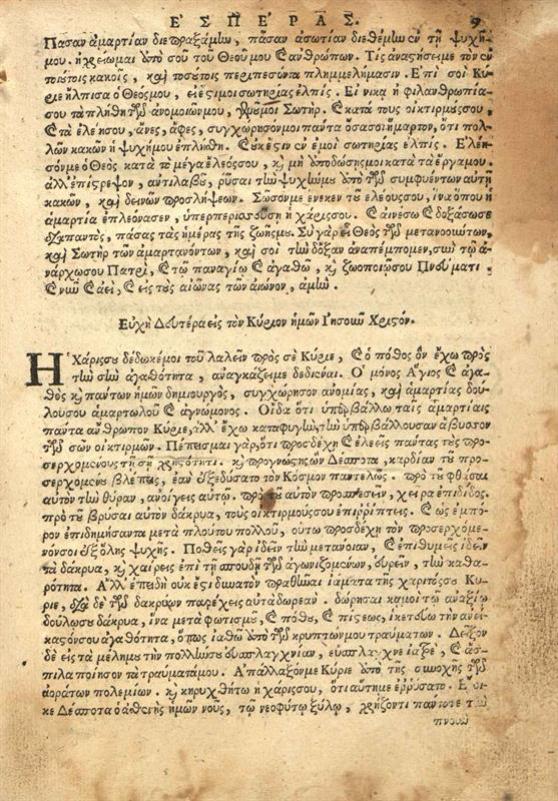 ΕΣΠΕΡΑΣ. 9
Πασαν ἁμαρτίαν διεπραξάμην, πᾶσαν ἀσωτίαν διεθέμην ἐν τῇ ψυχῇ-
μου. ἠχρείωμαι ἀπὸ σοῦ τοῦ Θεοῦ μου καὶ ἀνθρώπων. Τίς ἀναστήσει με τὸν ἐν
τοιούτοις κακοῖς, καὶ τοσούτοις περιπεσόντα πλημμελήμασιν. Ἐπὶ σοὶ Κύ-
ριε ἤλπισα ὁ Θεός μου, εἰ ἔστι μοι σωτηρίας ἐλπίς. Εἰ νικᾷ ἡ φιλανθρωπία-
σου τὰ πλήθη τῶν ἀνομιῶν μου, γενοῦ μοι Σωτήρ. καὶ κατὰ τοὺς οἰκτιρμούς σου,
καὶ τὰ ἐλέη σου, ἄνες, ἄφες, συγχώρησόν μοι πάντα ὅσα σοι ἥμαρτον, ὅτι πολ-
λῶν κακῶν ἡ ψυχή μου ἐπλήσθη. καὶ οὐκ ἔστιν ἐν ἐμοὶ σωτηρίας ἐλπίς. Ἐλέη-
σόν με ὁ Θεὸς κατὰ τὸ μέγα ἔλεός σου, καὶ μὴ ἀποδώσῃς μοι κατὰ τὰ ἔργα μου.
ἀλλ' ἐπίστρεψον, ἀντιλαβοῦ, ῥῦσαι τὴν ψυχήν μου ἀπὸ τῶν συμφυέντων αὐτῇ
κακῶν, καὶ δεινῶν προσλήψεων. Σῶσόν με ἕνεκεν τοῦ ἐλέους σου, ἵνα ὅπου ἡ
ἁμαρτία ἐπλεόνασεν, ὑπερπερισσεύσῃ ἡ χάρις σου. καὶ αἰνέσω καὶ δοξάσω σε
διαπαντὸς, πάσας τὰς ἡμέρας τῆς ζωῆς μου. Σὺ γὰρ εἶ Θεὸς τῶν μετανοούντων,
καὶ Σωτὴρ τῶν ἁμαρτανόντων, καὶ σοὶ τὴν δόξαν ἀναπέμπομεν, σὺν τῷ ἀ-
νάρχῳ σου Πατρὶ, καὶ τῷ παναγίῳ καὶ ἀγαθῷ, καὶ ζωοποιῷ σου Πνεύματι.
καὶ νῦν καὶ ἀεὶ, καὶ εἰς τοὺς αἰῶνας τῶν αἰώνων, ἀμήν.
Εὐχὴ Δευτέρα εἰς τὸν Κύριον ἡμῶν Ἰησοῦν Χριστόν.
Ἡ Χάρις σου δέδωκέ μοι τοῦ λαλεῖν πρὸς σὲ Κύριε, καὶ ὁ πόθος ὃν ἔχω πρὸς
τὴν σὴν ἀγαθότητα, ἀναγκάζει με δεδιέναι. Ὁ μόνος Ἅγιος καὶ ἀγα-
θὸς καὶ πάντων ἡμῶν δημιουργὸς, συγχώρησον ἀνομίας, καὶ ἁμαρτίας δού-
λου σου ἁμαρτωλοῦ καὶ ἀγνώμονος. Οἶδα ὅτι ὑπερβάλλω ταῖς ἁμαρτίαις
πάντα ἄνθρωπον Κύριε, ἀλλ' ἔχω καταφυγὴν τὴν ὑπερβάλλουσαν ἄβυσσον
τῶν σῶν οἰκτιρμῶν. Πέπεισμαι γὰρ, ὅτι προσδέχῃ καὶ ἐλεεῖς πάντας τοὺς προ-
σερχομένους τῇ σῇ χρηστότητι. καὶ προγνώσκων Δέσποτα, καρδίαν τοῦ προ-
σερχομένου βλέπεις, ἐὰν ἐξεδύσατο τὸν Κόσμον παντελῶς. πρὸ τοῦ φθάσαι
αὐτὸν τὴν θύραν, ἀνοίγεις αὐτῷ. πρὸ τοῦ αὐτὸν προσπεσεῖν, χεῖρα ἐπιδίδως.
πρὸ τοῦ βρῦσαι αὐτὸν δάκρυα, τοὺς οἰκτιρμούς σου ἐπιρρίπτεις. καὶ ὡς ἔμπο-
ρον ἐπιδημήσαντα μετὰ πλούτου πολλοῦ, οὕτω προσδέχῃ τὸν προσερχόμε-
νόν σοι ἐξ ὅλης ψυχῆς. Ποθεῖς γὰρ ἰδεῖν τὴν μετάνοιαν, καὶ ἐπιθυμεῖς ἰδεῖν
τὰ δάκρυα, καὶ χαίρεις ἐπὶ τῇ σπουδῇ τῶν ἀγωνιζομένων, εὑρεῖν, τὴν καθα-
ρότητα. Ἀλλ' ἐπειδὴ οὐκ ἔστι δυνατὸν πραθῆναι ἰάματα τῆς χάριτός σου Κύ-
ριε, διὰ δὲ τῶν δακρύων παρέχεις αὐτὰ δωρεάν. δώρησαι κἀμοὶ τῷ ἀναξίῳ
δούλῳ σου δάκρυα, ἵνα μετὰ φωτισμοῦ, καὶ πόθου, καὶ πίστεως, ἱκετεύω τὴν ἀνεί-
καστόν σου ἀγαθότητα, ὅπως ἰαθῶ ἀπὸ τῶν κρυπτῶν μου τραυμάτων. Δεῖξον
δὲ εἰς τὰ μέλη μου τὴν πολλήν σου εὐσπλαγχνίαν, εὔσπλαγχνε ἰατρὲ, καὶ ἄσ-
πιλα ποίησον τὰ τραύματά μου. Ἀπάλλαξόν με Κύριε ἀπὸ τῆς συνοχῆς τῶν
ἀοράτων πολεμίων. καὶ κηρυχθήτω ἡ χάρις σου, ὅτι αὕτη με ἐρρύσατο. Ἔοι-
κε Δέσποτα ὁ ἀσθενὴς ἡμῶν νοῦς, τῷ νεοφύτῳ ξύλῳ, χρῄζοντι πάντοτε τῶν